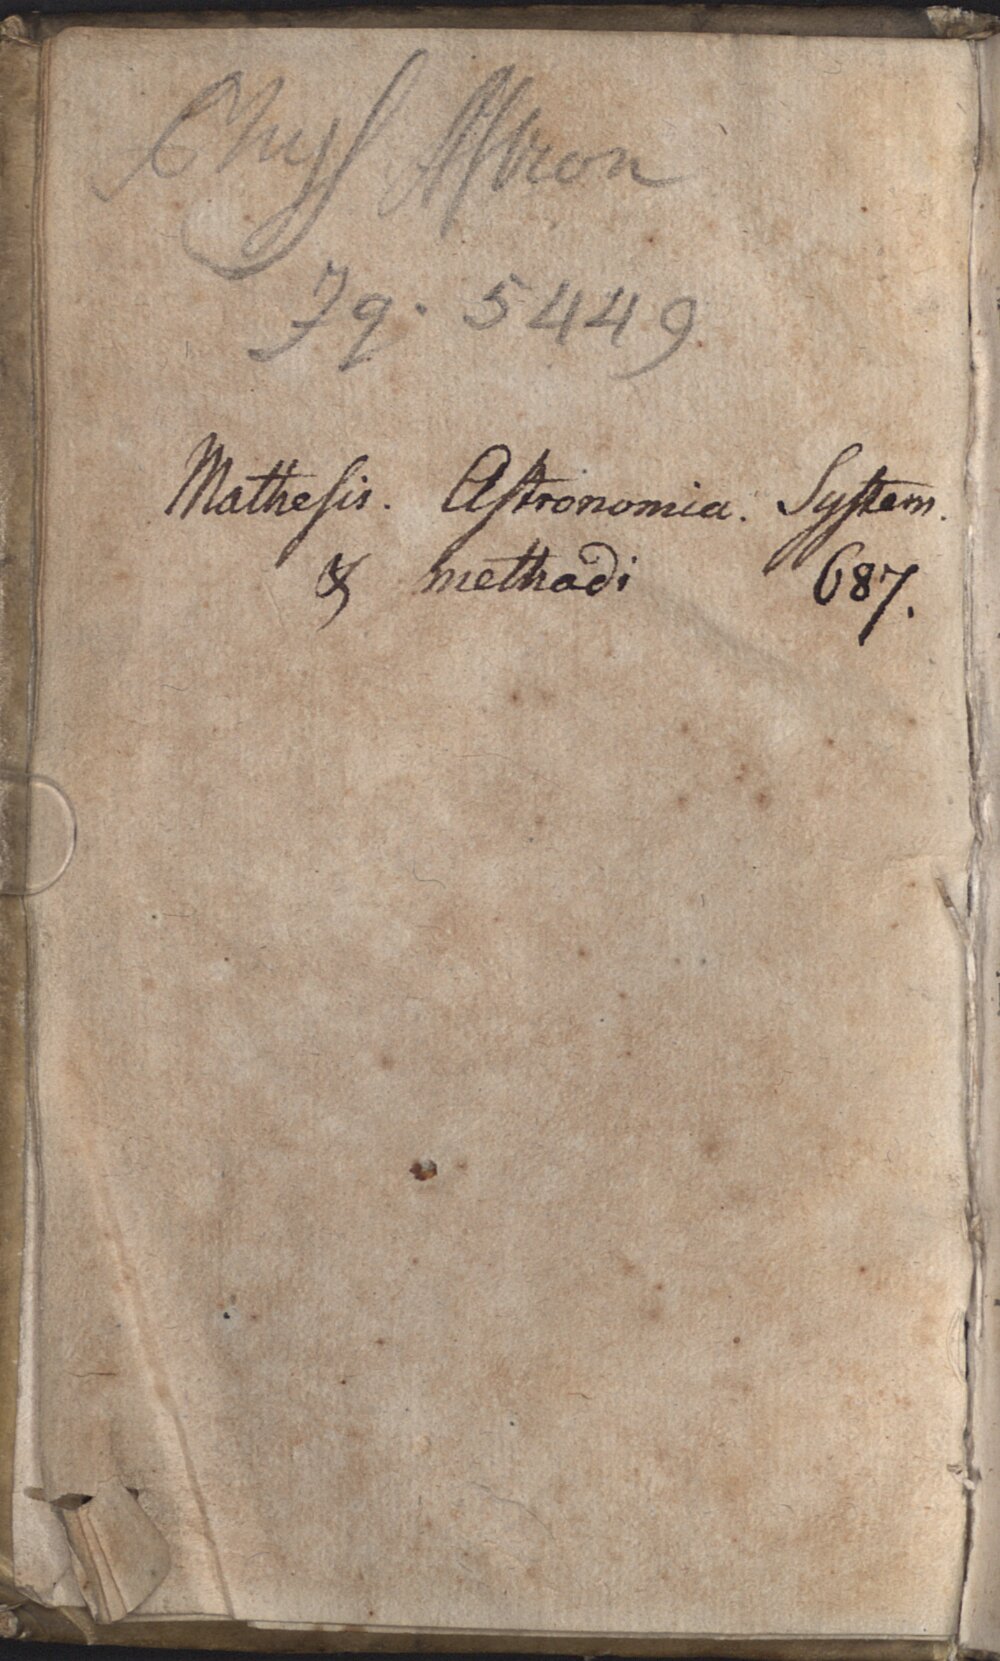 Phyſ Aſtron
Jq. 5449
Matheſis. Aſtronomia. Syſtem.
& methodi 687.